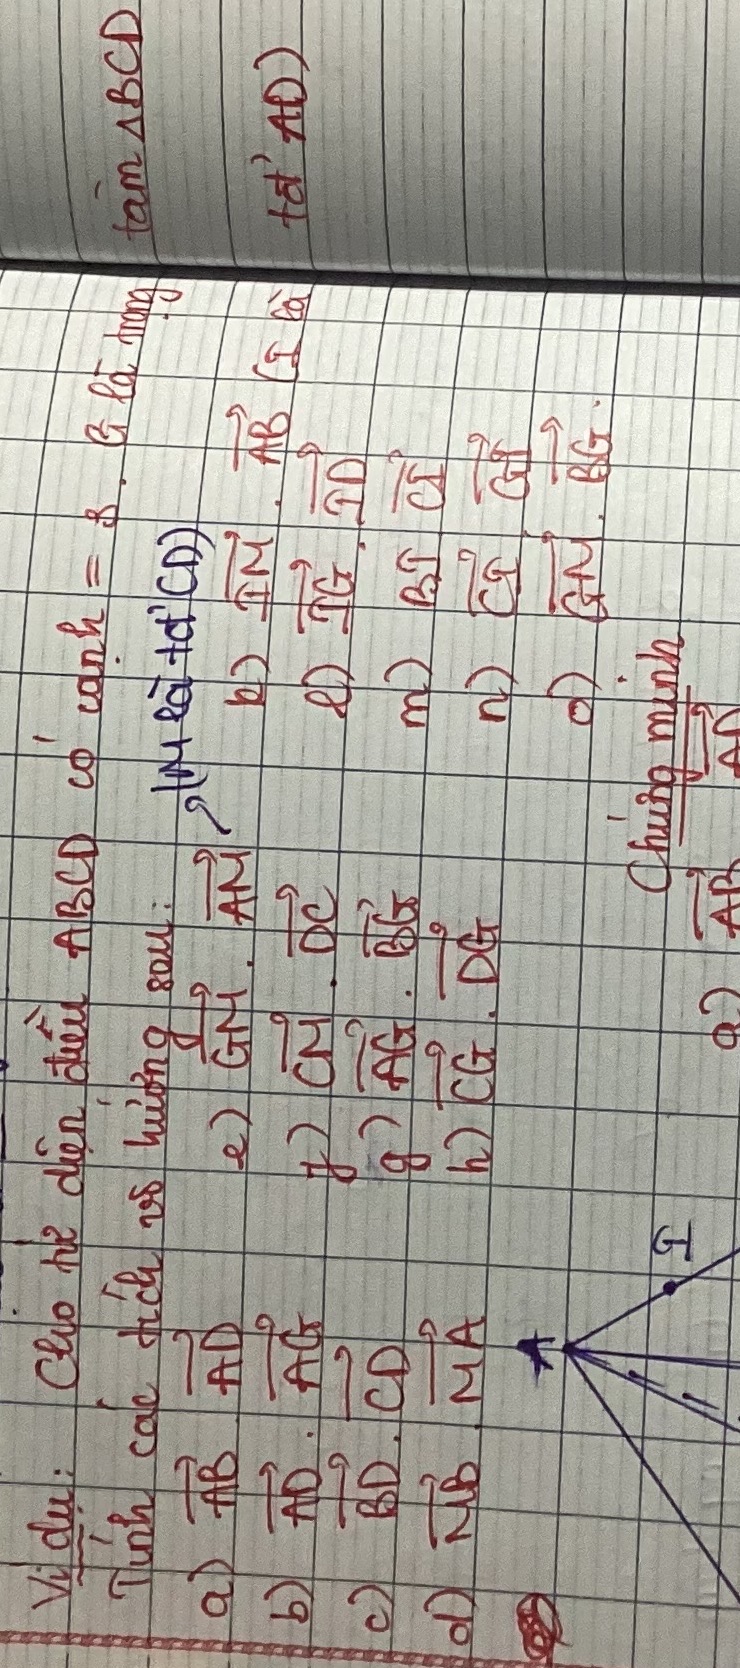 Ví dụ: Cho tứ diện đều ABCD có cạnh = 8. G là trọng tâm ΔBCD
Tính các tích vô hướng sau: (M là tđ' CD)
a) AB AD e) GM . AM k) IM . AB (I là tđ' AD)
b) AD . AG f) CM . DC l) IG . ID
c) BD . CD g) AG . BG m) BI CI
d) MB . MA h) CG . DG n) CI GI
o) GM . BG.
Chứng minh
A I
a) AB AD